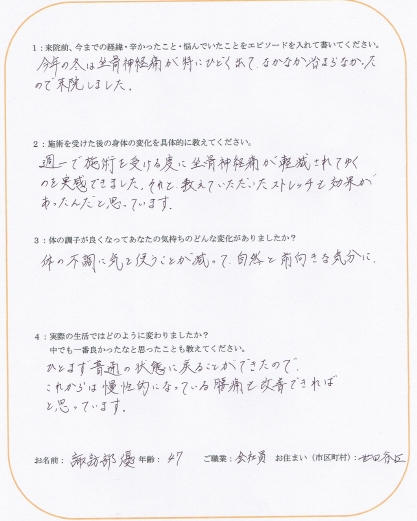 1：来院前、今までの経緯・辛かったこと・悩んでいたことをエピソードを入れて書いてください。
今年の冬は坐骨神経痛が特にひどく出て、なかなか治まらなかった
ので来院しました。
2：施術を受けた後の身体の変化を具体的に教えてください。
週一で施術を受ける度に坐骨神経痛が軽減されてゆく
のを実感できました。それと、教えていただいたストレッチも効果が
あったんだと思っています。
3：体の調子が良くなってあなたの気持ちのどんな変化がありましたか？
体の不調に気を使うことが減って、自然と前向きな気分に。
4：実際の生活ではどのように変わりましたか？
中でも一番良かったなと思ったことも教えてください。
ひとまず普通の状態に戻ることができたので、
これからは慢性的になっている腰痛も改善できれば
と思っています。
お名前： 諏訪部 優 年齢： 47 ご職業： 会社員 お住まい（市区町村）： 世田谷区